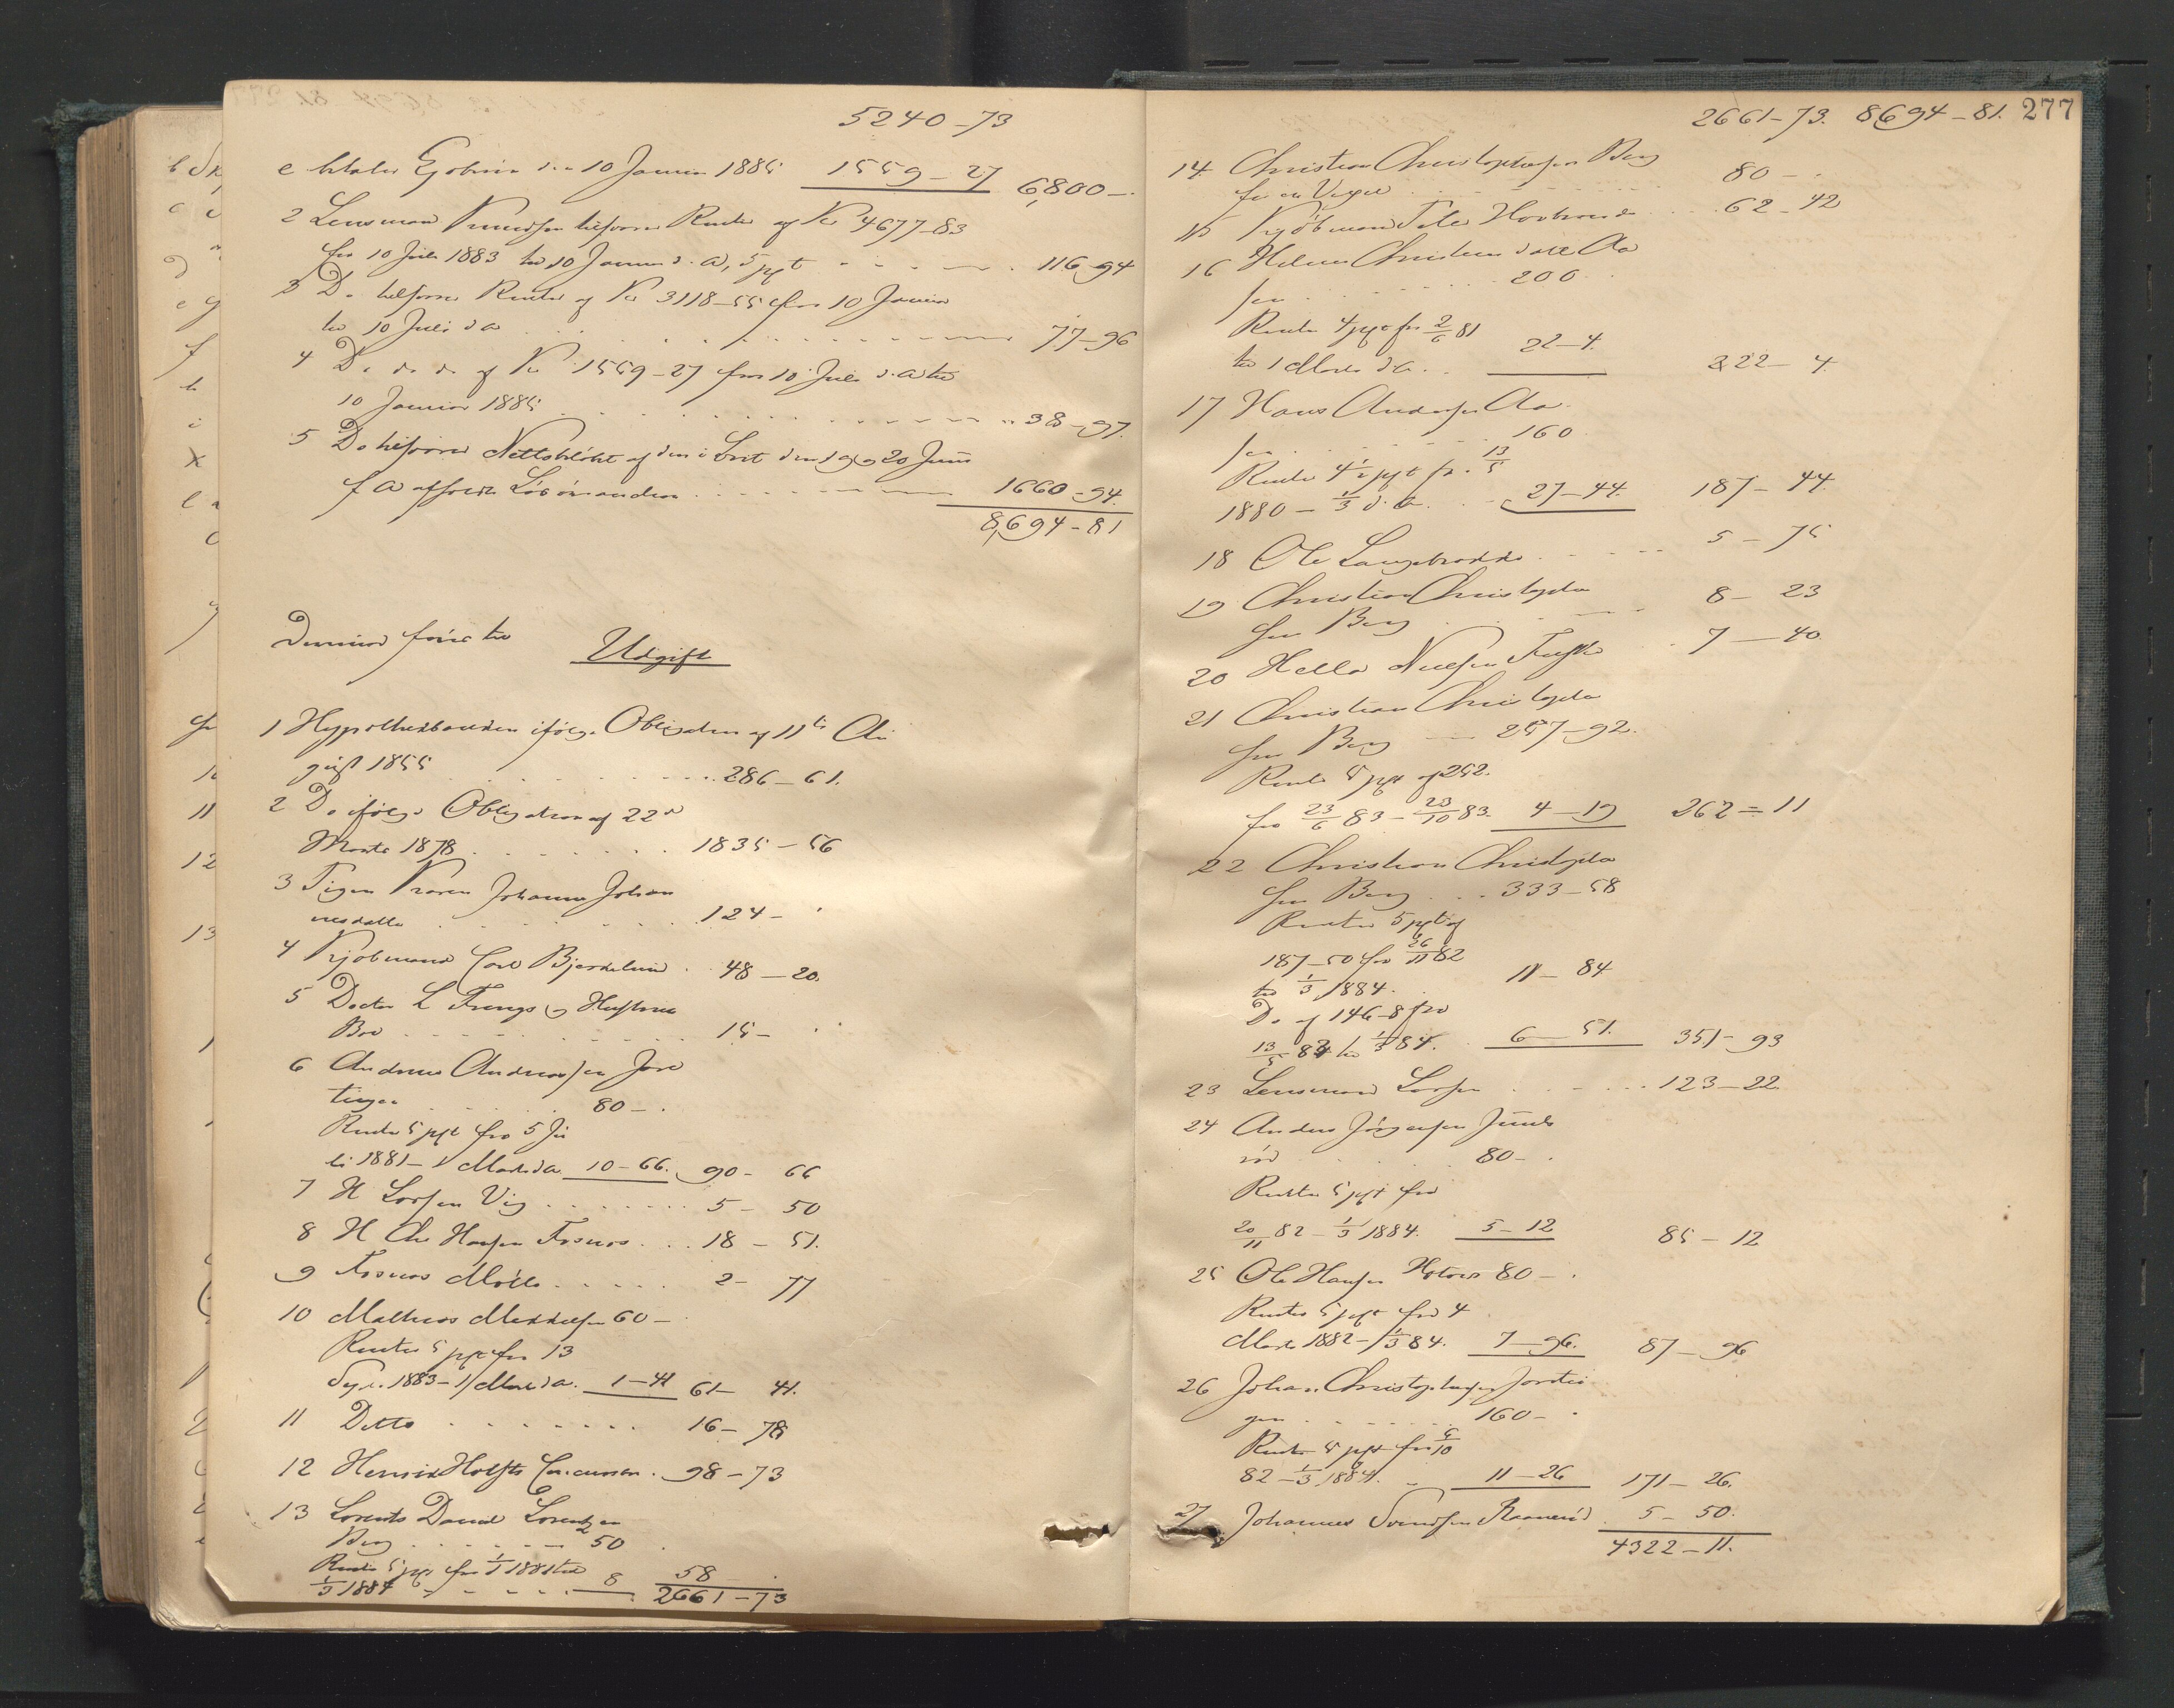 5240-73
e betales Gjobrin den 10 Januar 1885 1559-27 6,800-
2 Lensmand Knudsen tilsvarer Renter af Kr 4677-83
fra 10 Juli 1883 til 10 Januar d. A, 5 pCt 116-94
3 Do tilsvarer Renter af Kr 3118-55 fra 10 Januar
til 10 Juli d A 77-96
4 Do do do af Kr 1559-27 fra 10 Juli d. A til
10 Januar 1885 38-97.
5 Do tilsvarer Nettobeløbet af den i Boet den 19 og 20 Juni
f A afholdte Løsøreauction 1660-94.
8,694-81
Derimod føres til
Udgift
1 Hypothekbanken ifølge Obligation af 11te Au
gust 1855 286-61.
2 Do ifølge Obligation af 22d
Marts 1878 1835-56
3 Pigen Karen Johanne Johan
nesdatter 124-
4 Kjøbmand Carl Bjerkelund 48-20.
5 Doctor L Frengs og Hustrues
Bo 15-
6 Andreas Andreassen Jor
tingen 80-.
Renter 5 pCt fra 5 Ju
li 1881-1 Marts d A 10-66. 90-66
7 H Larsen Vig 5-50
8 H Chr Hansen Fosnæs 18-51.
9 Fosnæs Mølle 2-77
10 Mathias Mikkelsen 60-
Renter 5 pCt fra 13
Sept. 1883-1/Marts d A. 1-41 61-41.
11 Ditto 16-78
12 Henrik Holfts Concursbo 98-73
13 Lorents David Lorentzen
Berg 50
Renter 5 pCt fra 1/1 1881 til
1/3 1884 8 58
2661-73
2661-73. 8694-81. 277
14 Christian Christophersen Berg
for en Vexel 80-
15 Kjøbmand Peder Hovbrende 62-42
16 Helene Christine datter Aa
sen 200
Renter 4 pCt fra 2/6 81
til 1 Marts d A. 22-4. 222-4
17 Hans Andersen Aa
sen 160
Renter 4½ pCt fr. 13/5
1880 - 1/3 d. A. 27-44. 187-44.
18 Ole Langebrekke 5-75
19 Christian Christopher
sen Berg 8-23
20 Helle Nielsen Freste 7-40
21 Christian Christopher
sen Berg 257-92.
Renter 5 pCt af 252.
fra 23/6 83 - 23/10 83. 4-19 262=11
22 Christian Christopher
sen Berg 333-58
Renter 5 pCt af
187-50 fra 26/11 82
til 1/3 1884. 11-84
Do af 146-8 fra
13/5 83 til 1/3 84. 6-51. 351-93
23 Lensmand Larsen 123-22
24 Anders Jørgensen Juul
rød 80-.
Renter 5 pCt fra
20/11 82 - 1/3 1884. 5-12 85-12
25 Ole Hansen 80-.
Renter 5 pCt fra 4
Marts 1882-1/3 84. 7-96. 87-96
26 Johan Christophersen Jortin
gen 160-.
Renter 5 pCt fra 5/10
82 - 1/3 1884. 11-26 171-26.
27 Johannes Svendsen Ramerød 5-50.
4322-11.